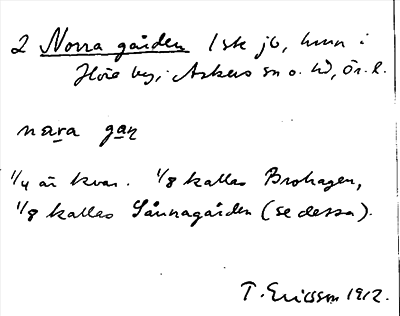 2 Norra gården 1 sk jb, hmn i
by, i Askers sn o. hd, Ör. l.
nara gaɳ
1/4 är kvar. 1/8 kallas Brohagen,
1/8 kallas Sånnagården (se dessa).
T. Ericsson 1912.